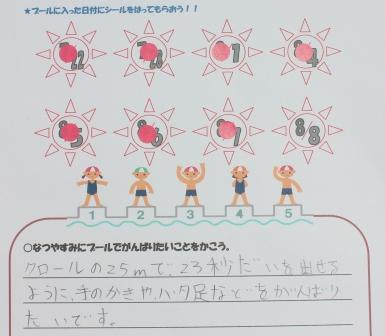 ★プールに入った日付にシールをはってもらおう!!
22
28
1
4
5
6
7
8/8
1 2 3 4 5
○なつやすみにプールでがんばりたいことをかこう。
クロールの25mで、23秒だいを出せる
ように、手のかきや、バタ足などをがんばり
たいです。